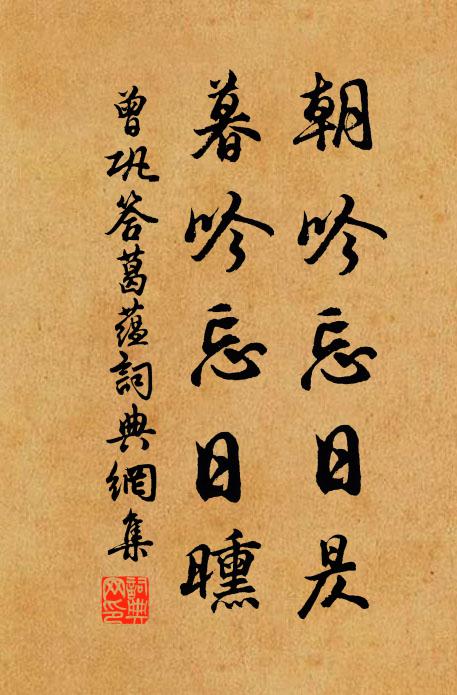 朝吟忘日昃
暮吟忘日曛
曾巩答葛蕴詞典網集
詞典網印